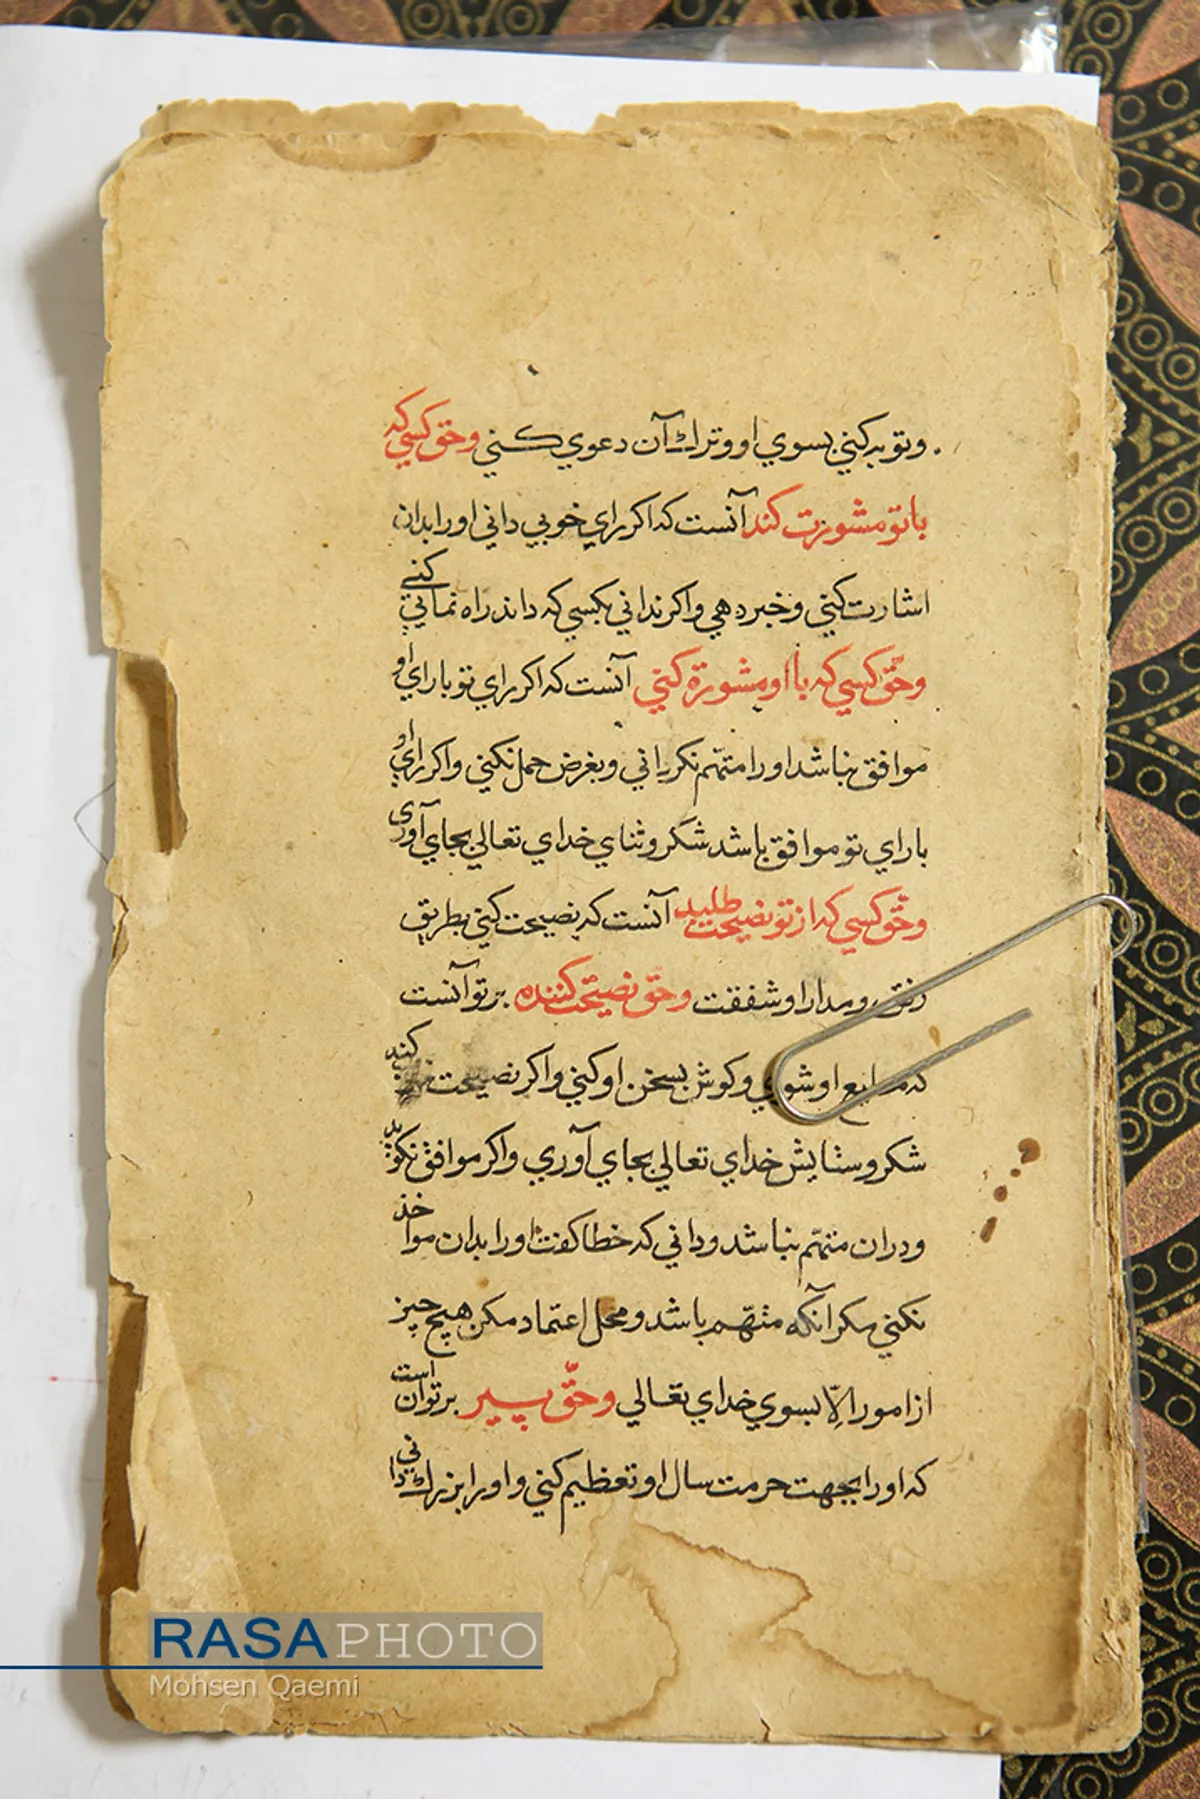 وتوبه كني بسوي او وترك آن دعوي كني وحق كسي كه
باتو مشورت كند آنست كه اكر راي خوبي داني اورا بدان
اشارت كني وخبر دهي واكر نداني بكسي كه داند راه نمائي كني
وحق كسي كه با او مشورة كني آنست كه اكر راي تو باراي او
موافق نباشد اورا متهم نكرداني وبغرض حمل نكني واكر راي او
باراي تو موافق باشد شكر وثناي خداي تعالي بجاي آوري
وحق كسي كه از تو نصيحت طلبد آنست كه نصيحت كني بطريق
رفق ومدارا وشفقت وحق نصيحت كننده بر تو آنست
كه متابع او شوي وكوش بسخن او كني واكر نصيحت كند
شكر وستايش خداي تعالي بجاي آوري واكر موافق نكويد
ودران متهم نباشد وداني كه خطا كفت اورا بدان مواخذ
نكني مكر آنكه متهم باشد ومحل اعتماد مكن هيچ چيز
از امور الا بسوي خداي تعالي وحق پير بر تو آن است
كه اورا بجهت حرمت سال او تعظيم كني واورا بزرك داني
RASA PHOTO
Mohsen Qaemi